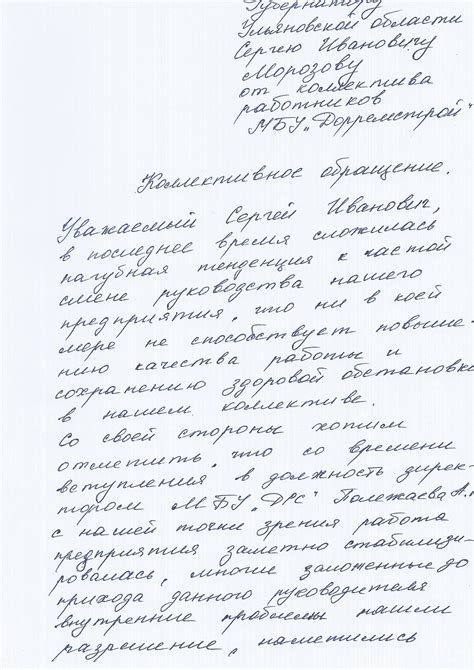 Губернатору
Ульяновской области
Сергею Ивановичу
Морозову
от коллектива
работников
МБУ „Дорремстрой"
Коллективное обращение.
Уважаемый Сергей Иванович,
в последнее время сложилась
пагубная тенденция к частой
смене руководства нашего
предприятия, что ни в коей
мере не способствует повыше-
нию качества работы и
сохранению здоровой обстановки
в нашем коллективе.
Со своей стороны хотим
отметить, что со времени
вступления в должность дирек-
тором МБУ „ДРС" Полежаева А.
с нашей точки зрения работа
предприятия заметно стабилизи-
ровалась, многие заложенные до
прихода данного руководителя
внутренние проблемы нашли
разрешение, наметились